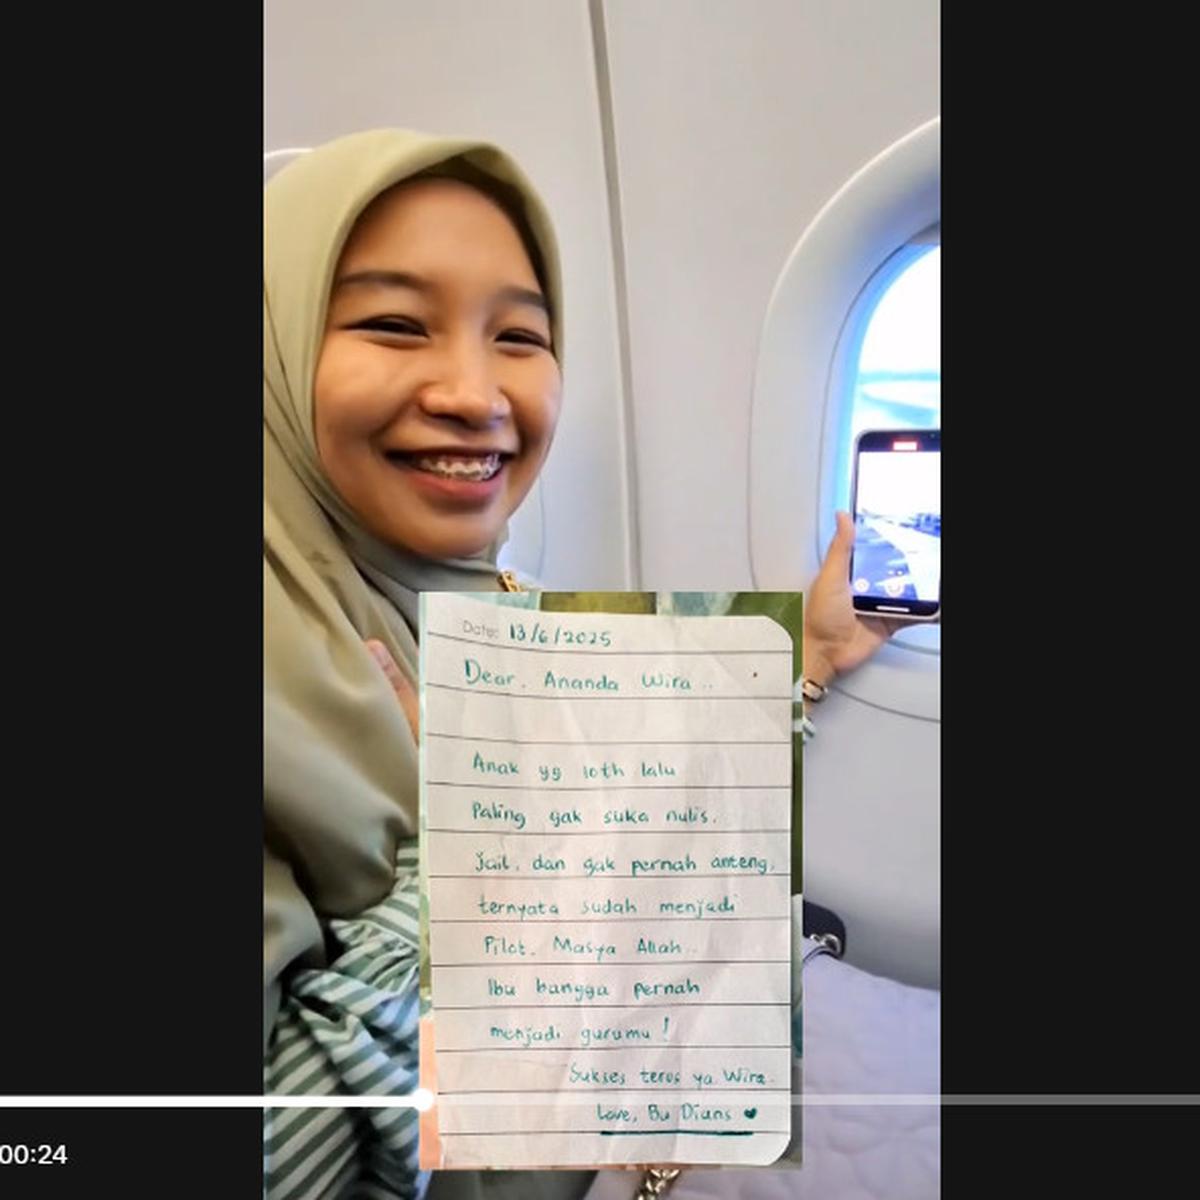 Date: 13/6/2025
Dear. Ananda Wira ..
Anak yg 10th lalu
Paling gak suka nulis.
jail. dan gak pernah anteng,
ternyata sudah menjadi
Pilot. Masya Allah..
Ibu bangga pernah
menjadi gurumu !
Sukses terus ya Wira.
Love, Bu Dians ♥
00:24